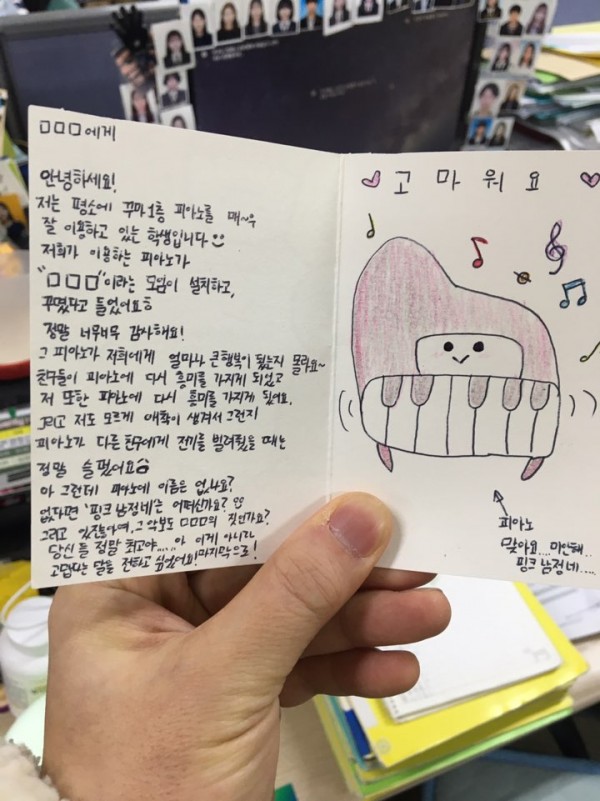 □□□에게
안녕하세요!
저는 평소에 꾸마 1층 피아노를 매~우
잘 이용하고 있는 학생입니다
저희가 이용하는 피아노가
"□□□"이라는 모임이 설치하고,
꾸몄다고 들었어요ㅎ
정말 너무너무 감사해요!
그 피아노가 저희에게 얼마나 큰 행복이 됐는지 몰라요~
친구들이 피아노에 다시 흥미를 가지게 되었고
저 또한 피아노에 다시 흥미를 가지게 됐어요.
그리고 저도 모르게 애착이 생겨서 그런지
피아노가 다른 친구에게 전기를 빌려줬을 때는
정말 슬펐어요
아 그런데 피아노에 이름은 없나요?
없다면 '핑크 남정네'는 어떠신가요?
그리고 그 악보도 □□□의 짓인가요?
당신들 정말 최고야.....아 이게 아니라
고맙다는 말을 전하고 싶었어요! 마지막으로!
고 마 워 요
피아노
맞아요...미안해..
핑크 남정네....